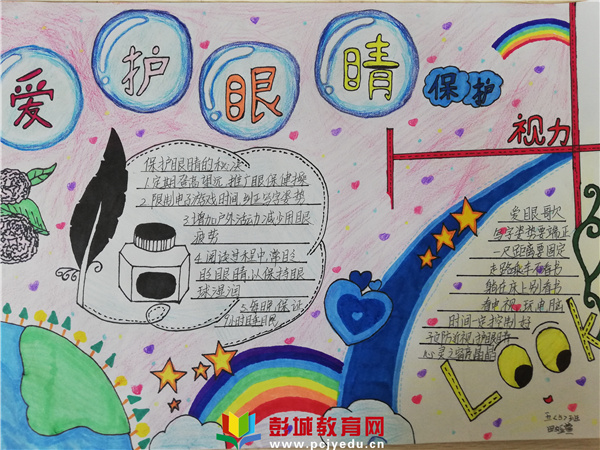 爱护眼睛
保护
视力
保护眼睛的秘诀
1.定期登高望远,推广眼保健操
2.限制电子游戏时间,纠正写字姿势
3.增加户外活动,减少用眼
疲劳
4.阅读过程中,常眨
眨眼睛,以保持眼
球湿润
5.每晚保证
9小时睡眠
爱眼歌
写字姿势要端正
一尺距离要固定
走路乘车不看书
躺在床上别看书
看电视、玩电脑
时间一定控制好
预防近视,护眼睛
心灵之窗
LOOK
彭城教育网
www.pcjyedu.cn